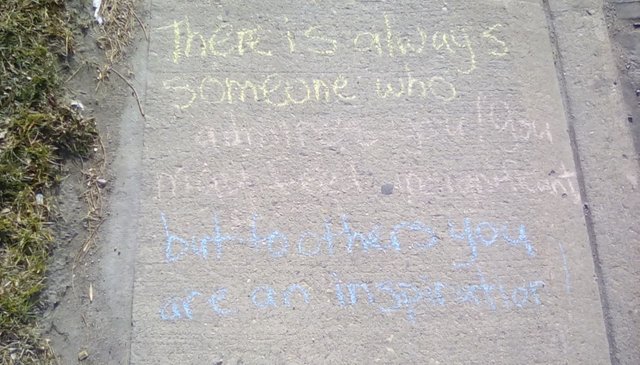 There is always
someone who
admires you! You
might feel insignificant
but to others you
are an inspiration!